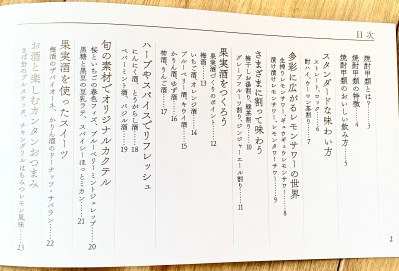 目次
焼酎甲類とは……3
焼酎甲類の特徴……4
焼酎甲類のおいしい飲み方……5
スタンダードな味わい方
ストレート、ロック……6
酎ハイ、ウーロン茶割り……7
多彩に広がるレモンサワーの世界
生搾りレモンサワー、ギュウギュウレモンサワー……8
漬け漬けレモンサワー、レモンタワーサワー……9
さまざまに割って味わう
梅干しお湯割り、緑茶割り……10
グレープフルーツ割り、ジンジャーエール割り……11
果実酒をつくろう
果実酒づくりのポイント……12
梅酒……13
いちご酒、オレンジ酒……14
ブルーベリー酒、キウイ酒……15
かりん酒、ゆず酒……16
柿酒、りんご酒……17
ハーブやスパイスでリフレッシュ
にんにく酒、とうがらし酒……18
ペパーミント酒、バジル酒……19
旬の素材でオリジナルカクテル
桜といちごの春色フィズ、ブルーベリーミントジュレップ……20
黒糖と黒豆の豆乳ラテ、スパイシーほっとミカン……21
果実酒を使ったスイーツ
梅酒のザバイオーネ、かりん酒のドーナッツ・サバラン……22
お酒と楽しむカンタンおつまみ
さば缶のブルスケッタ、チキングリルはちみつレモン風味……23
2